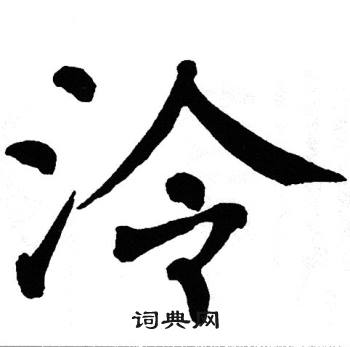 泠
词典网